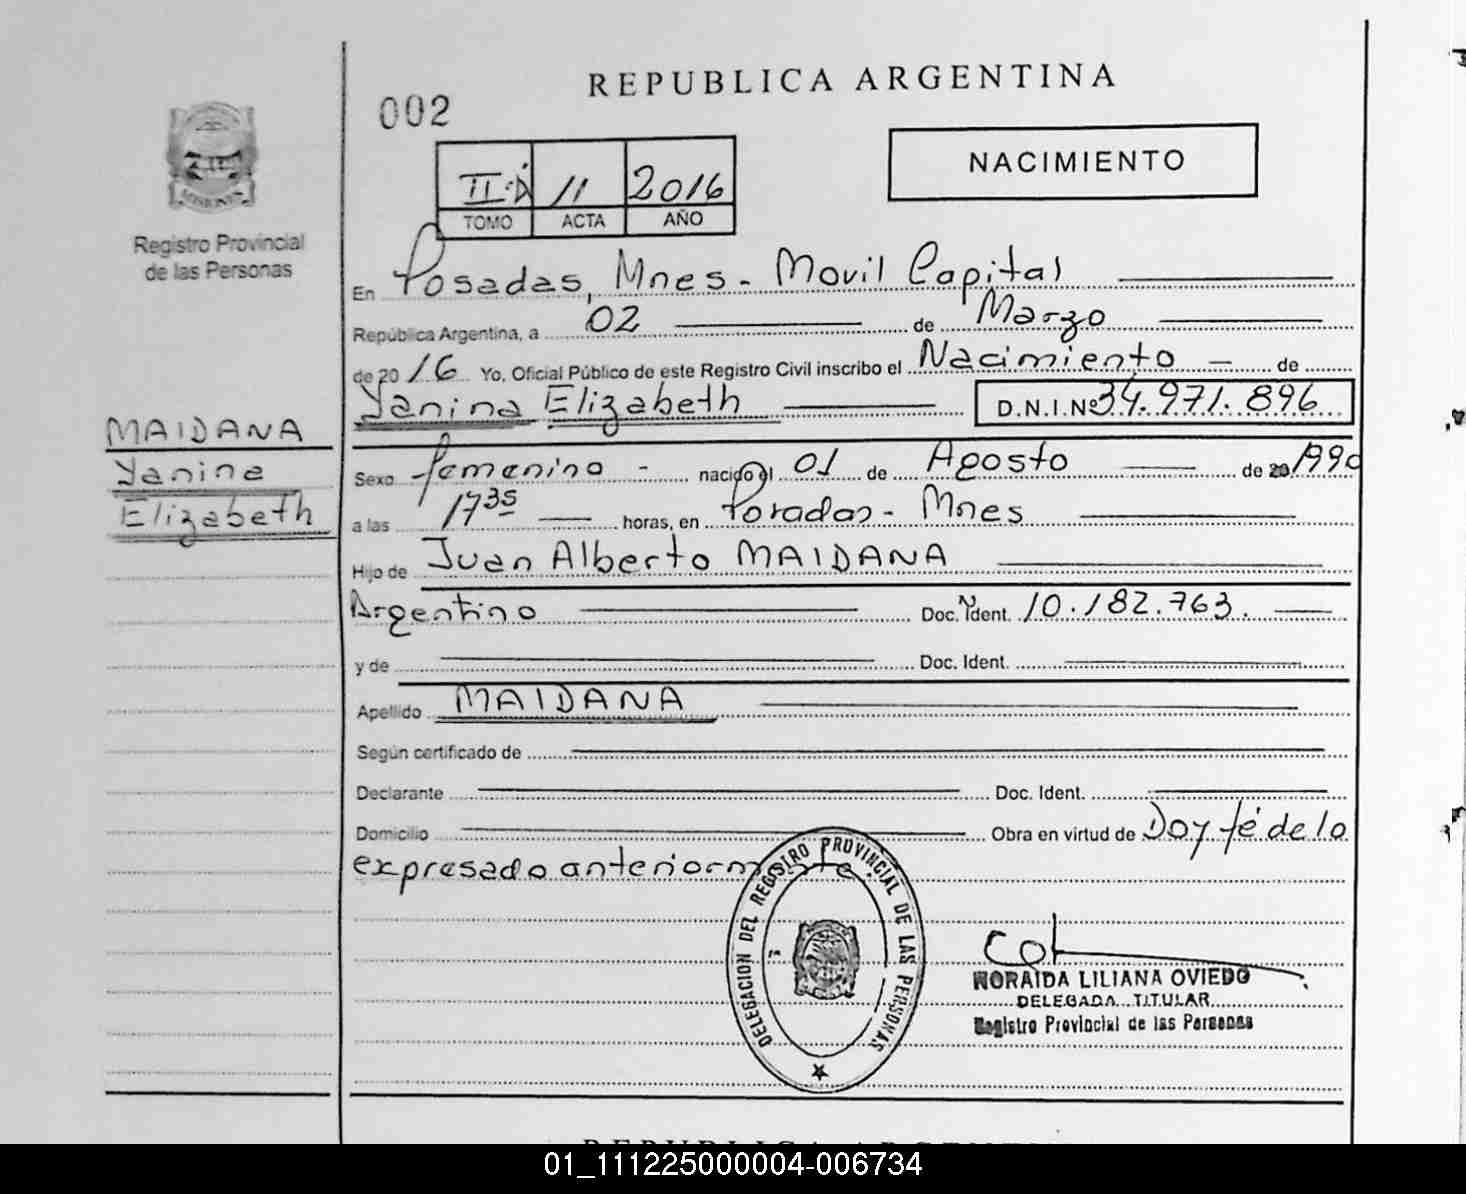 REPUBLICA ARGENTINA
002
NACIMIENTO
II 11 2016
TOMO ACTA AÑO
MISIONES
Registro Provincial
de las Personas
En Posadas, Mnes - Movil Capital
República Argentina, a 02 de Marzo
de 2016 Yo, Oficial Público de este Registro Civil inscribo el Nacimiento de
Yanina Elizabeth D.N.I.Nº 34.971.896
MAIDANA
Yanina
Elizabeth
Sexo femenino - nacido el 01 de Agosto de 20 1990
a las 17 35 horas, en Posadas - Mnes
Hijo de Juan Alberto MAIDANA
Argentino Doc. Ident. 10.182.763.
y de Doc. Ident.
Apellido MAIDANA
Según certificado de
Declarante Doc. Ident.
Domicilio Obra en virtud de Doy fé de lo
expresado anteriormente.
DELEGACION DEL REGISTRO PROVINCIAL DE LAS PERSONAS
NORAIDA LILIANA OVIEDO
DELEGADA TITULAR
Registro Provincial de las Personas
01_111225000004-006734